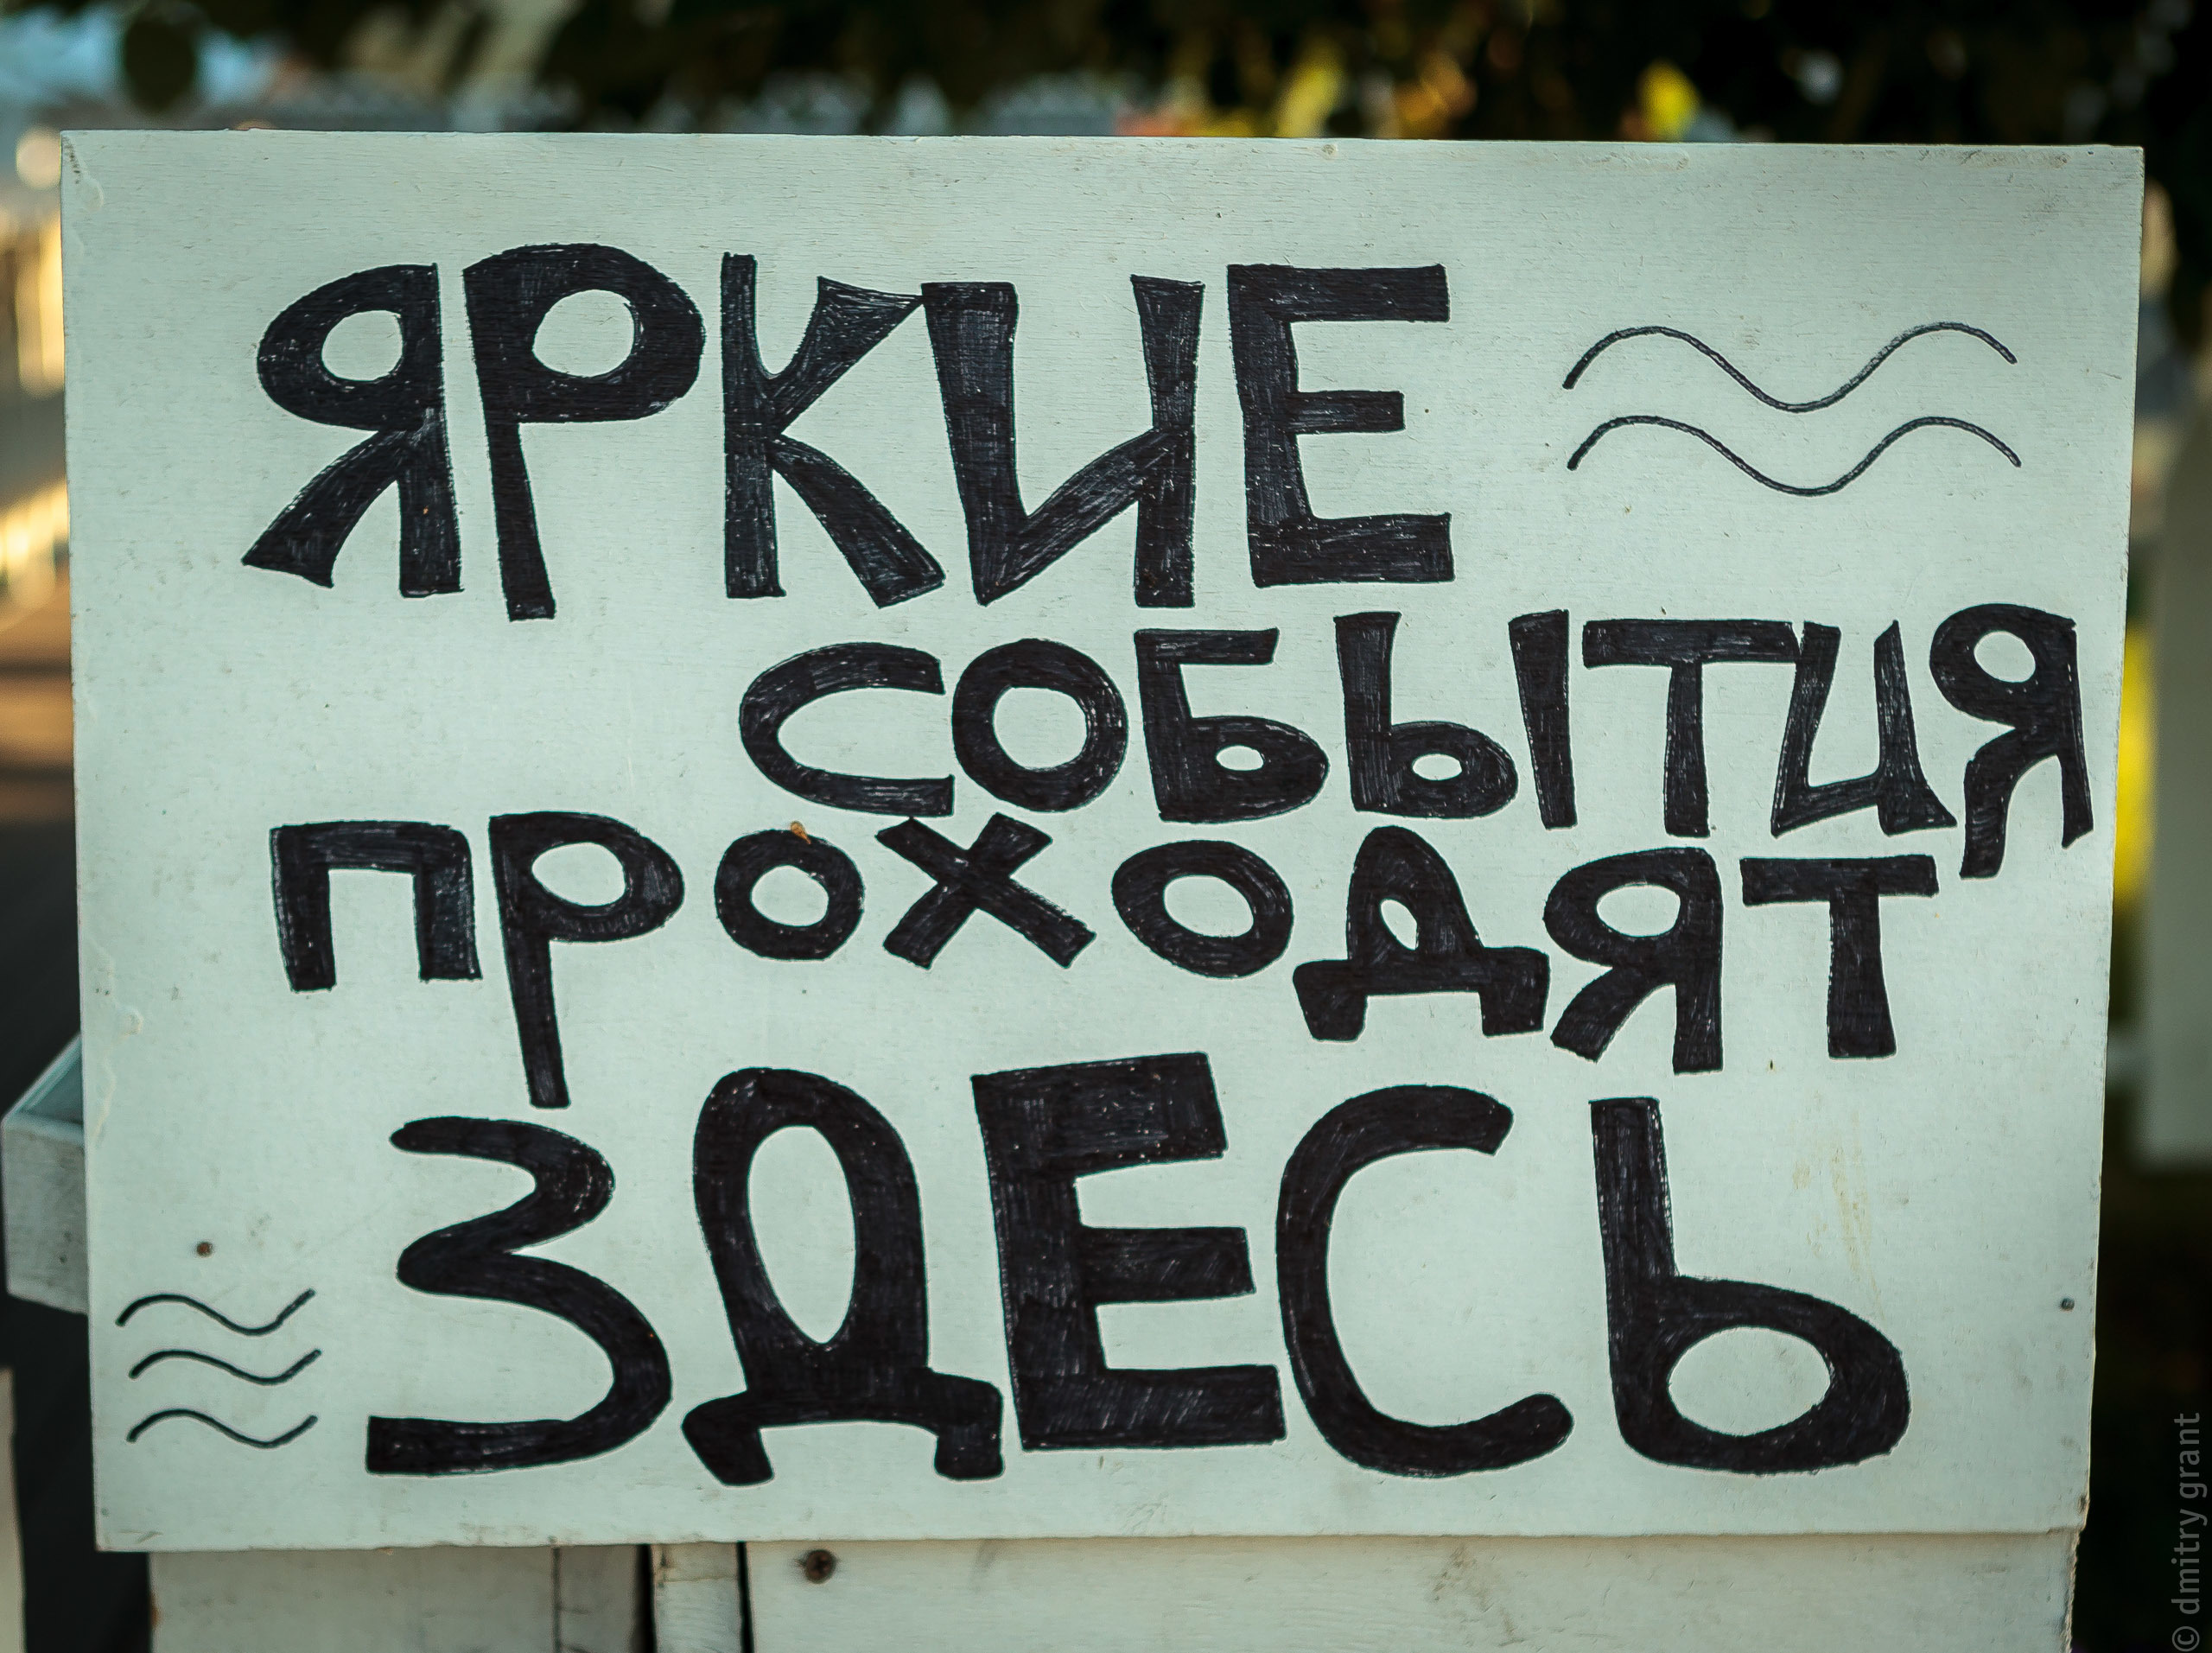 ЯРКИЕ
СОБЫТИЯ
ПРОХОДЯТ
ЗДЕСЬ
© dmitry grant